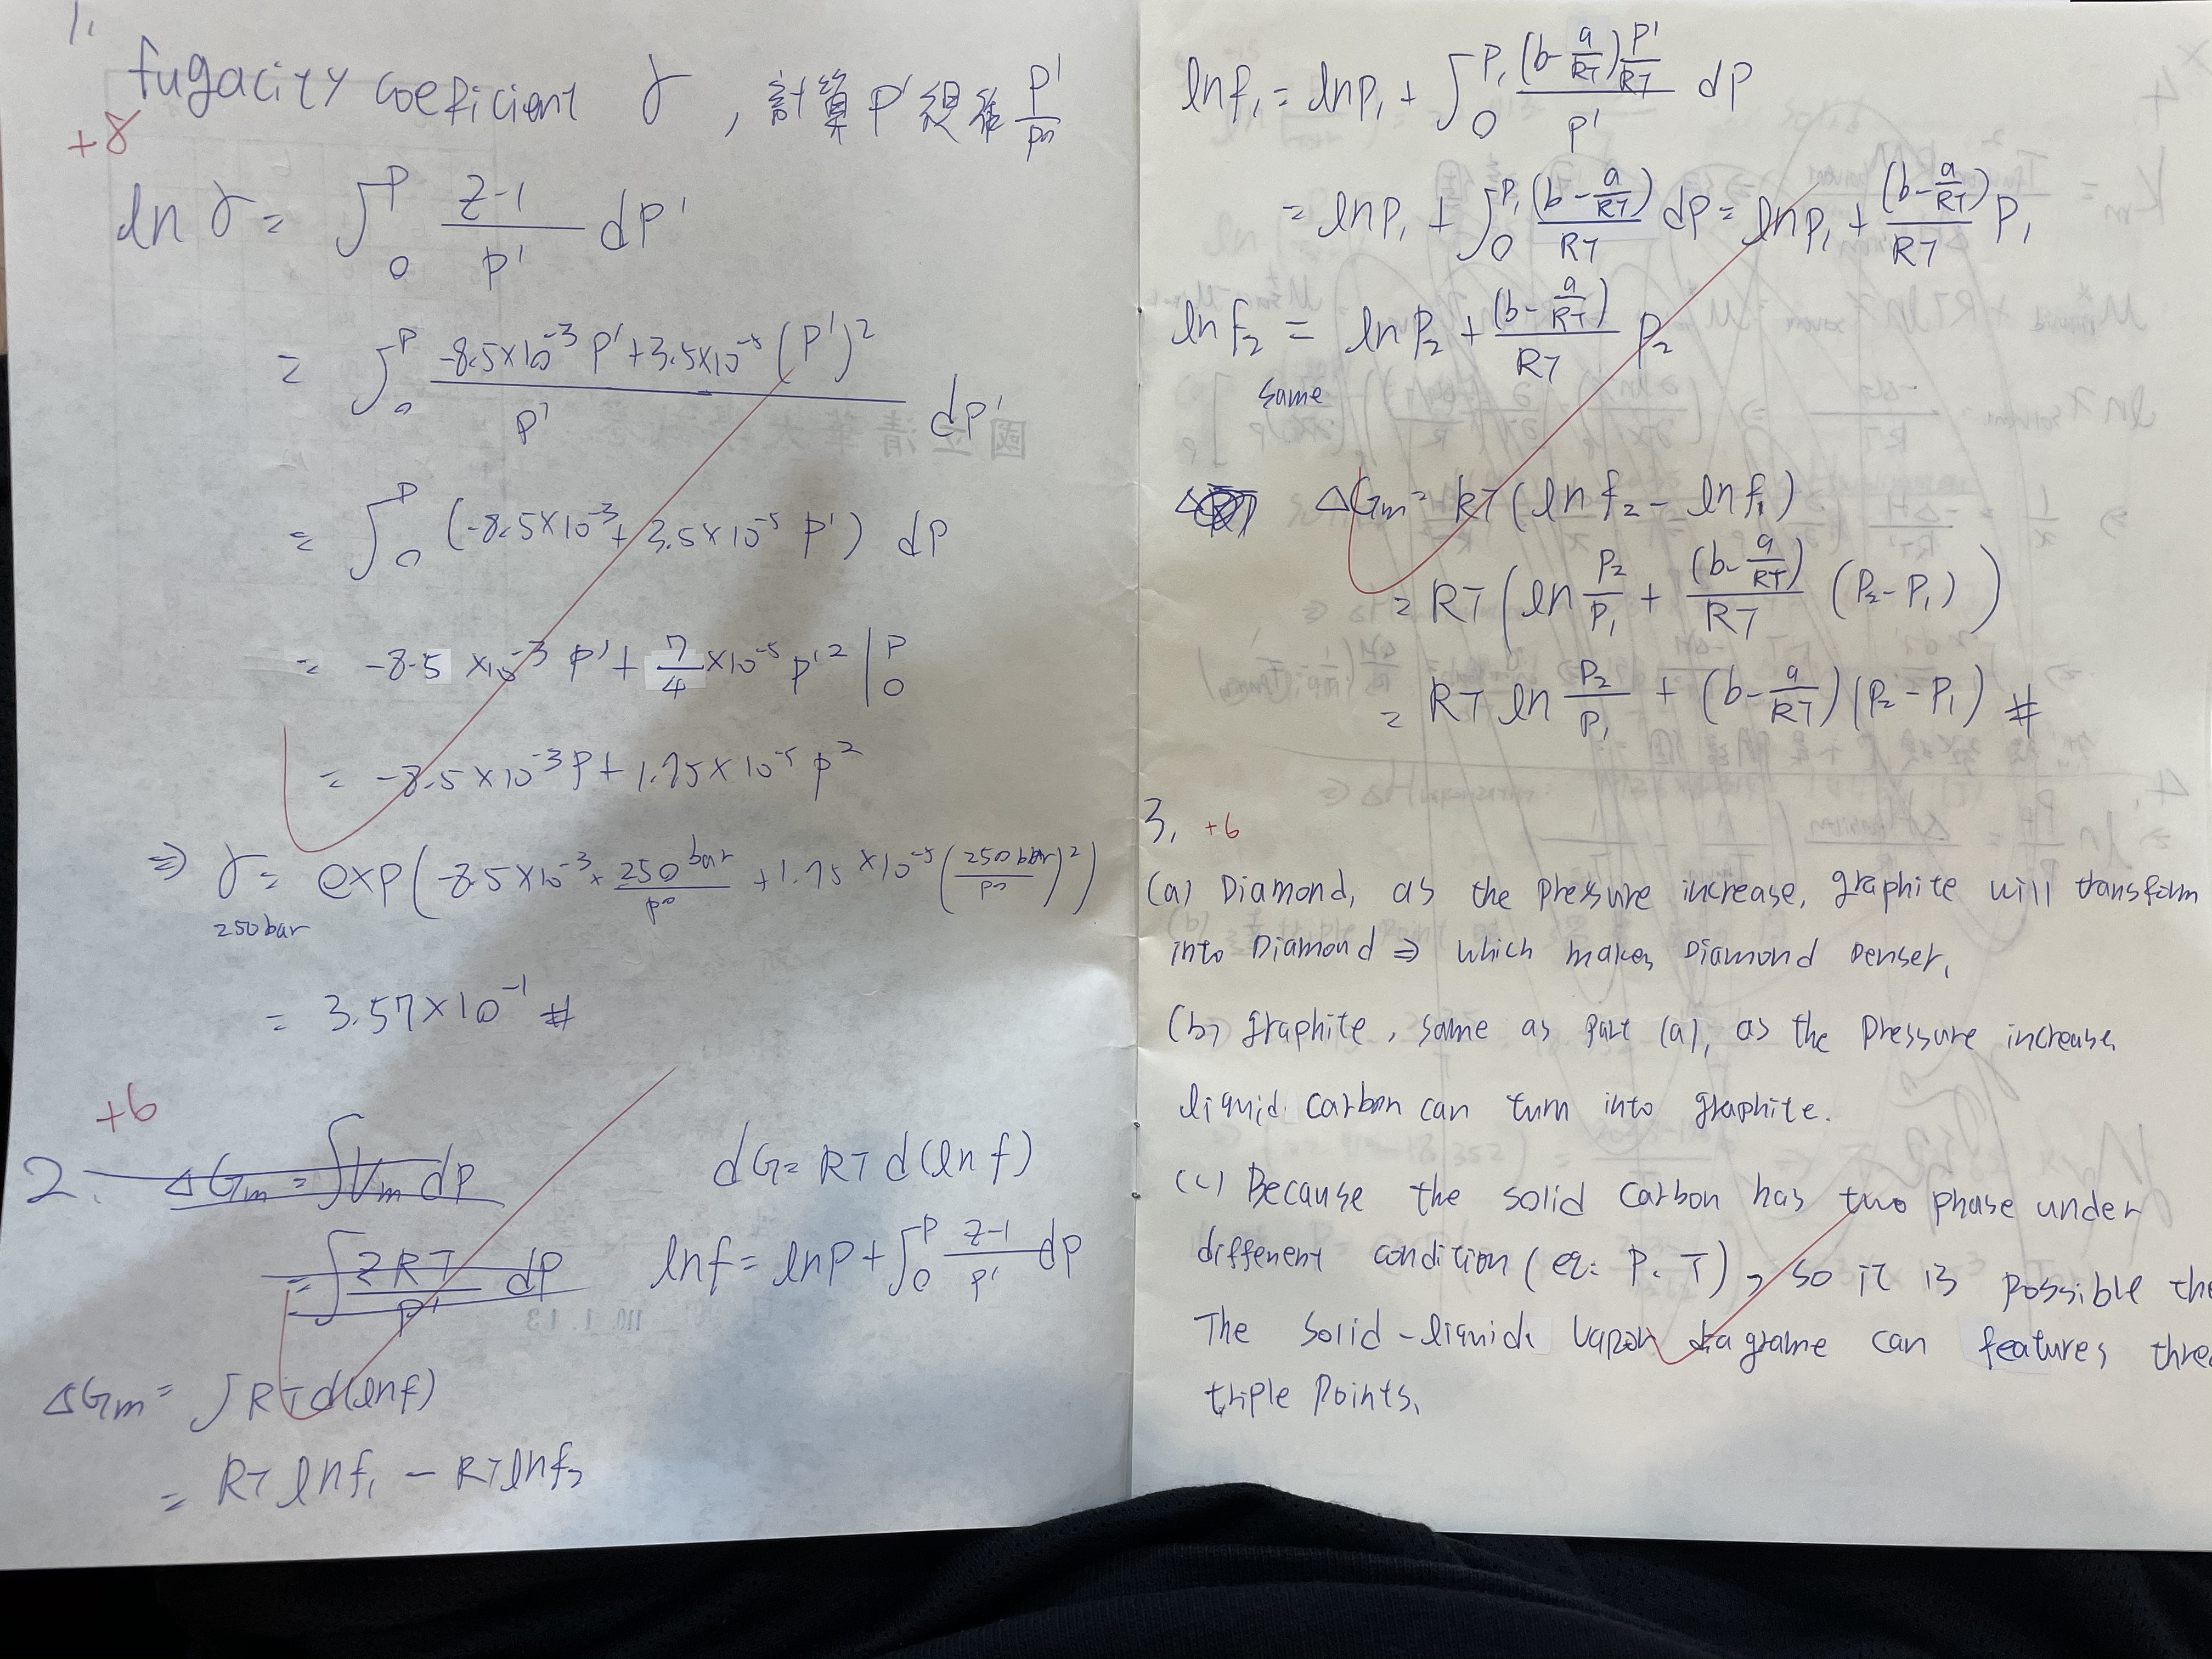 1.
fugacity coeficient γ , 計算P'視為 P'/P°
+8
ln γ = ∫₀^P (Z-1)/P' dP'
= ∫₀^P (-8.5×10⁻³ P' + 3.5×10⁻⁵ (P')²)/P' dP'
= ∫₀^P (-8.5×10⁻³ + 3.5×10⁻⁵ P') dP
= -8.5 ×10⁻³ P' + 7/4 ×10⁻⁵ P'² |₀^P
= -8.5×10⁻³P + 1.75×10⁻⁵ P²
⇒ γ 250bar = exp(-8.5×10⁻³ × 250bar/P° + 1.75×10⁻⁵ (250bar/P°)²)
= 3.57×10⁻¹ #
+6
2. ΔGm = ∫Vm dP
= ∫ ZRT/P' dP
dG = RT d(ln f)
lnf = lnP + ∫₀^P (Z-1)/P' dP
ΔGm = ∫RT d(lnf)
= RT lnf₁ - RT lnf₂
lnf₁ = lnP₁ + ∫₀^P₁ ((b - a/RT) P'/RT)/P' dP
= lnP₁ + ∫₀^P₁ (b - a/RT)/RT dP = lnP₁ + (b - a/RT)/RT P₁
lnf₂ = lnP₂ + (b - a/RT)/RT P₂
same
ΔGm = RT (ln f₂ - lnf₁)
= RT (ln P₂/P₁ + (b - a/RT)/RT (P₂ - P₁))
= RT ln P₂/P₁ + (b - a/RT)(P₂ - P₁) #
3. +6
(a) Diamond, as the Pressure increase, graphite will transform
into Diamond ⇒ which makes Diamond Denser.
(b) graphite, same as part (a), as the Pressure increase
liquid carbon can turn into graphite.
(c) Because the solid carbon has two phase under
different condition (eq: P. T), so it is possible
The solid-liquid vapor diagrame can features
triple Points.